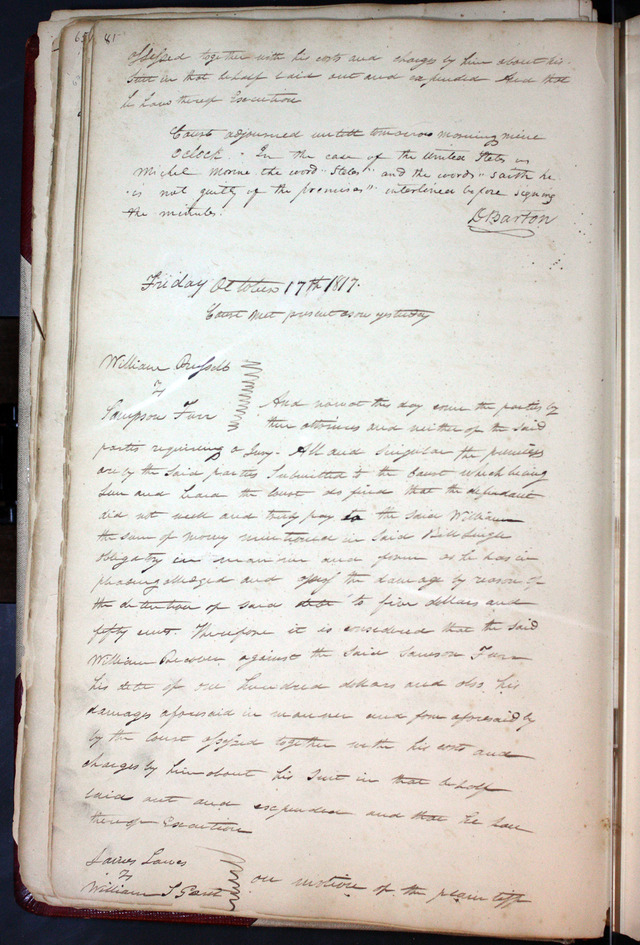 81
assessed together with his costs and charges by him about his
Suit in that behalf laid out and expended And that
he have thereof Execution
Court adjourned untill tomorrow morning nine
Oclock. In the case of the United States vs
Michel Morine the word "States" and the words "saith he
is not guilty of the premises" interlined before signing
the minutes.
D Barton
Friday October 17th 1817.
Court met present as on yesterday
William
vs
Sampson Furr
And now at this day come the parties by
their attornies and neither of the said
parties requiring a Jury. All and Singular the premises
are by the said parties Submitted to the Court which being
Seen and heard the Court do find that the defendant
did not well and truly pay to the said William
the sum of money mentioned in said
obligatory in manner and form as he has in
pleading alledged and assess the damage by reason of
the detention of said debt to five dollars and
fifty cents. Therefore it is considered that the said
William Recover against the said Samson Furr
his debt of one hundred dollars and also his
damages aforesaid in manner and form aforesaid by
by the Court assessed together with his costs and
charges by him about his Suit in that behalf
laid out and expended and that he have
thereof Execution
James
vs
William S Gant
on motion of the plaintiff